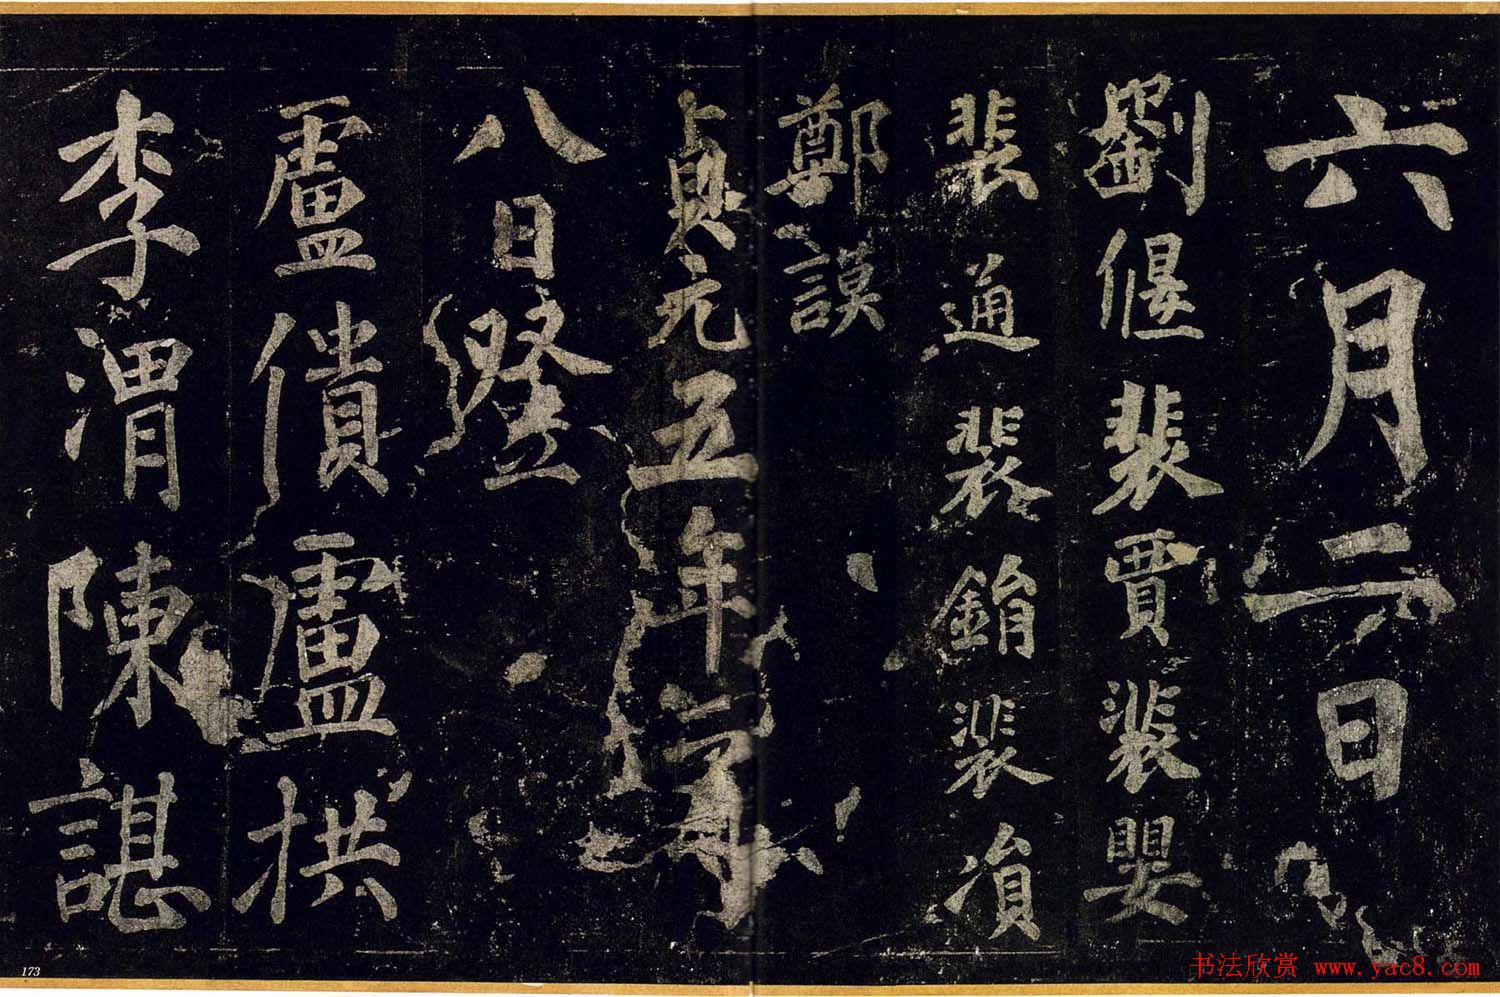 六月二日
劉偃裴賈裴嬰
裴通裴銷裴
鄭謨
貞元五年
八日登
盧僓盧拱
李渭陳諶
173
书法欣赏 www.yac8.com